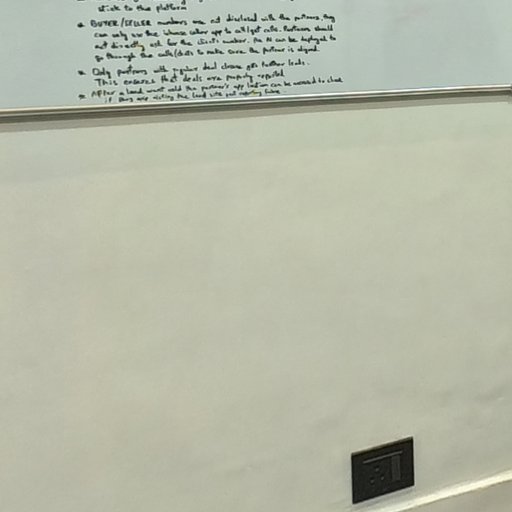 stick to the platform
* BUYER/SELLER numbers are not disclosed with the partners, they
can only use the inhouse caller app to call/get calls. Partners should
not directly ask for the client's number. An AI can be deployed to
go through the calls/chats to make sure the partner is aligned.
* Only partners with proper deal closure get further leads.
This ensures that deals are properly reported.
* After a land went sold the partner's app location can be to check
if they are visiting the land site but reporting false.